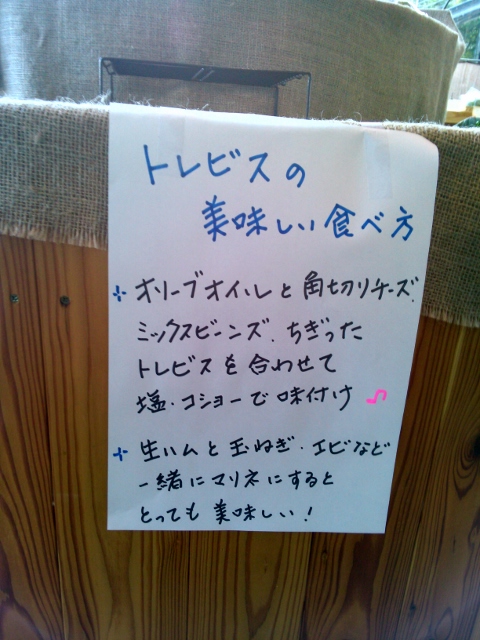 トレビスの
美味しい食べ方
オリーブオイルと角切りチーズ、
ミックスビーンズ、ちぎった
トレビスを合わせて
塩・コショーで味付け♫
生ハムと玉ねぎ・エビなど
一緒にマリネにすると
とっても美味しい!